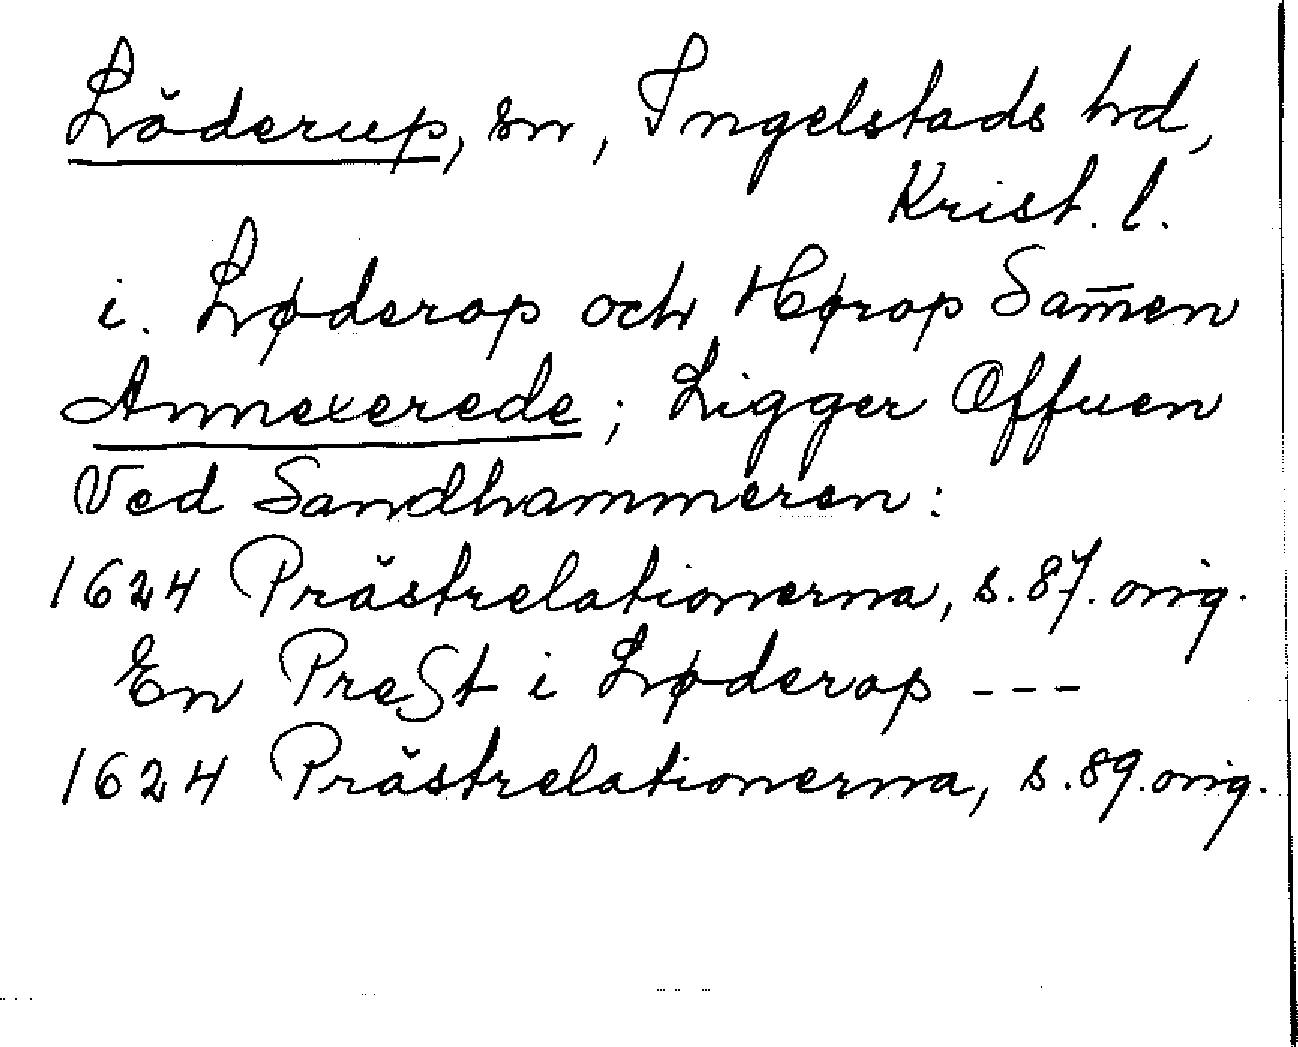 Löderup, sn, Ingelstads hd,
Krist. l.
i. Løderop och Hørop Sam̄en
Annexerede; Ligger Offuen
Ved Sandhammeren:
1624 Prästrelationerna, s. 87. orig.
En PreSt i Løderop ---
1624 Prästrelationerna, s. 89. orig.